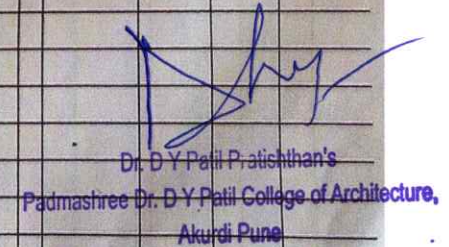 Dr. D Y Patil Pratishthan's
Padmashree Dr. D Y Patil College of Architecture,
Akurdi Pune